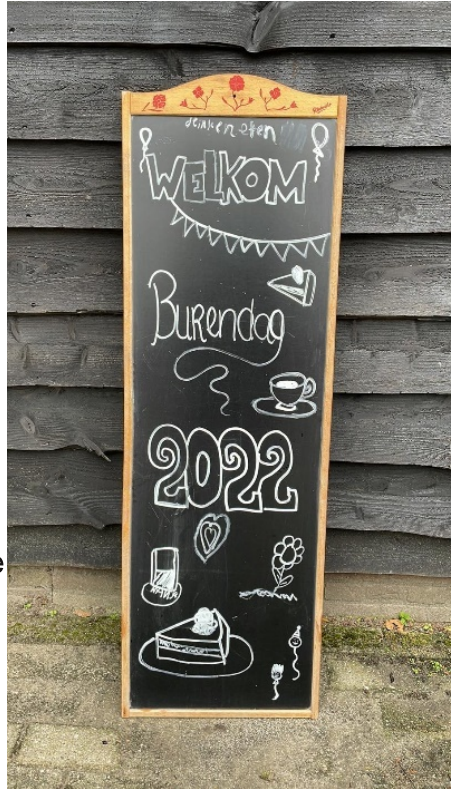 drinken eten
WELKOM
BURENdag
2022
e